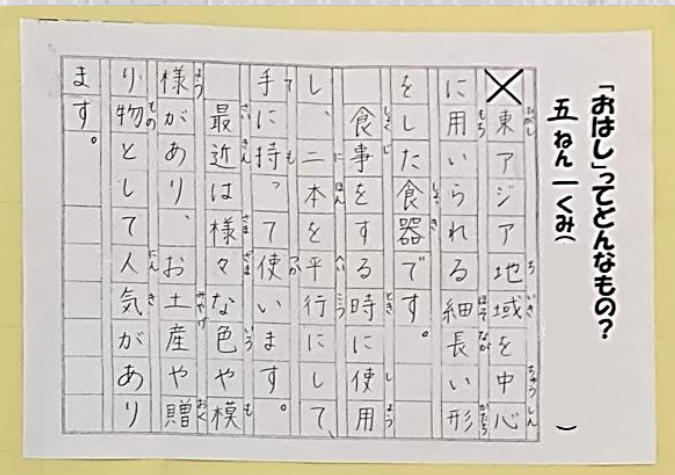 「おはし」ってどんなもの?
五ねん一くみ( )
東アジア地域を中心
に用いられる細長い形
をした食器です。
食事をする時に使用
し、二本を平行にして、
手に持って使います。
最近は様々な色や模
様があり、お土産や贈
り物として人気があり
ます。